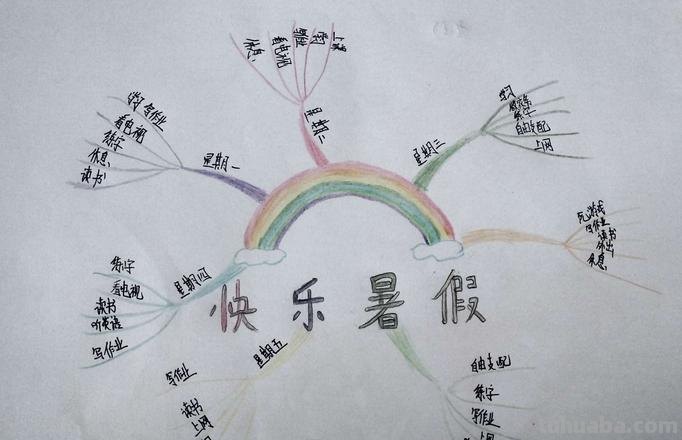 快乐暑假
星期一
写作业
看电视
练字
休息
读书
星期二
休息
看电视
星期三
练字
自由支配
上网
写作业
读书
休息
星期四
练字
看电视
读书
听英语
写作业
星期五
写作业
读书
上网
自由支配
练字
写作业
上网
tdhuaba.com